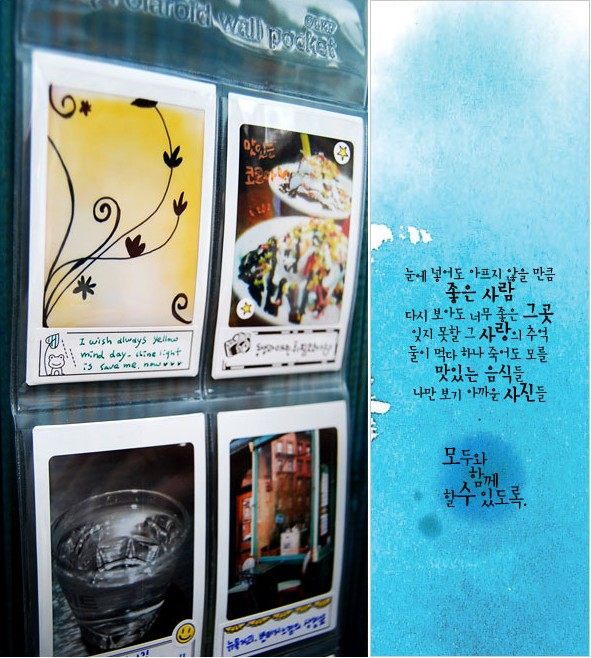 Polaroid wall pocket
맛있는
I wish always yellow
mind day. shine light
is save me, now ♥♥♥
눈에 넣어도 아프지 않을 만큼
좋은 사람
다시 보아도 너무 좋은 그곳
잊지 못할 그 사랑의 추억
둘이 먹다 하나 죽어도 모를
맛있는 음식들
나만 보기 아까운 사진들
모두와
함께
할 수 있도록.